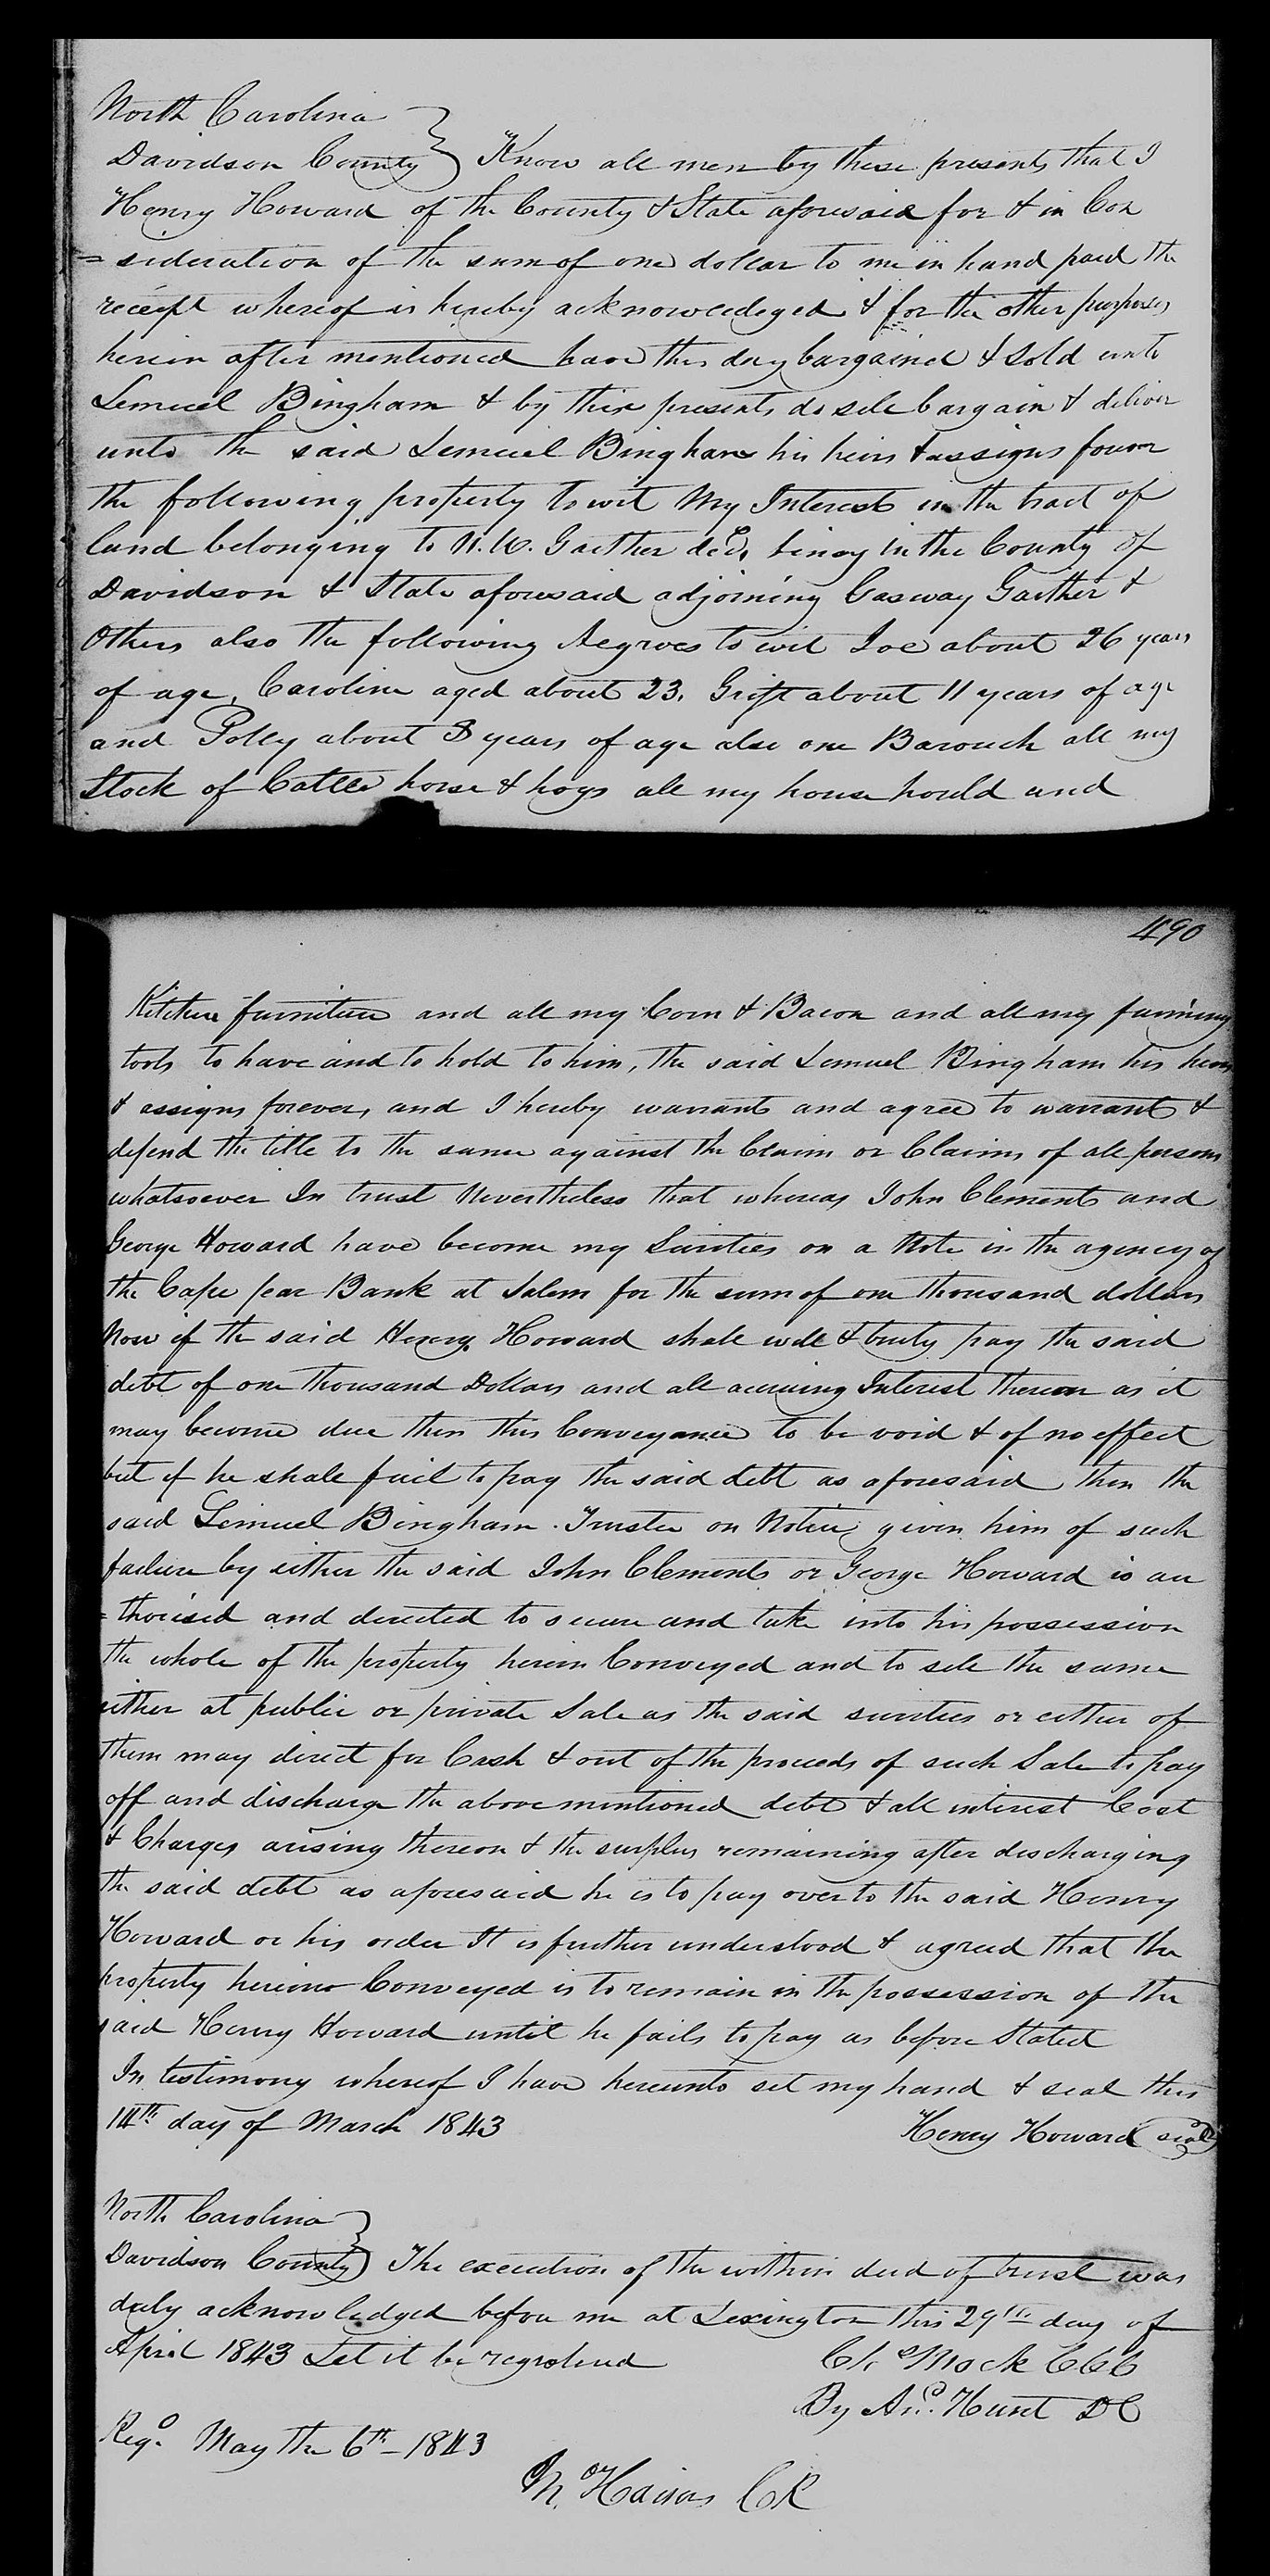 North Carolina
Davidson County } Know all men by these presents that I
Henry Howard of the County & State aforesaid for & in Con
= sideration of the sum of one dollar to me in hand paid the
receipt whereof is hereby acknowledeged & for the other purposes
herein after mentioned have this day bargained & sold unto
Lemuel Bingham & by these presents do sele bargain & deliver
unto the said Lemuel Bingham his heirs & assigns
the following property to wit My Interest in the tract of
land belonging to Gaither decd. lying in the County of
Davidson & State aforesaid adjoining Casway Gaither &
Others also the following Negroes to wit Joe about 26 years
of age, Caroline aged about 23, Grift about 11 years of age
and Polly about 8 years of age also one Barouch all my
Stock of Cattle horse & hogs all my house hould and
490
Kitchen furniture and all my Corn & Bacon and all my farming
tools to have and to hold to him, the said Lemuel Bingham his heirs
& assigns forever, and I hereby warrant and agree to warrant &
defend the title to the same against the Claim or Claims of all persons
whatsoever In trust Nevertheless that whereas John Clement and
George Howard have become my Surities on a Note in the agency of
the Cape fear Bank at Salem for the sum of one thousand dollars
Now if the said Henry Howard shall well & truly pay the said
debt of one thousand Dollars and all accruing Interest thereon as it
may become due then this Conveyance to be void & of no effect
but if he shall fail to pay the said debt as aforesaid then the
said Lemuel Bingham Trustee on Notice given him of such
failure by either the said John Clement or George Howard is au
= thorised and directed to secure and take into his possession
the whole of the property herein Conveyed and to sele the same
either at public or private Sale as the said surities or either of
them may direct for Cash & out of the proceeds of such Sale to pay
off and discharge the above mentioned debt & all interest Cost
& Charges arising thereon & the surplus remaining after discharging
the said debt as aforesaid he is to pay over to the said Henry
Howard or his order It is further understood & agreed that the
property herein Conveyed is to remain in the possession of the
said Henry Howard until he fails to pay as before Stated
In testimony whereof I have hereunto set my hand & seal this
14th day of March 1843 Henry Howard (seal)
North Carolina
Davidson County } The execution of the within deed of trust was
duly acknowledged before me at Lexington this 29th day of
April 1843 Let it be registered Mock CCC
By Hunt DC
Regd. May the 6th 1843